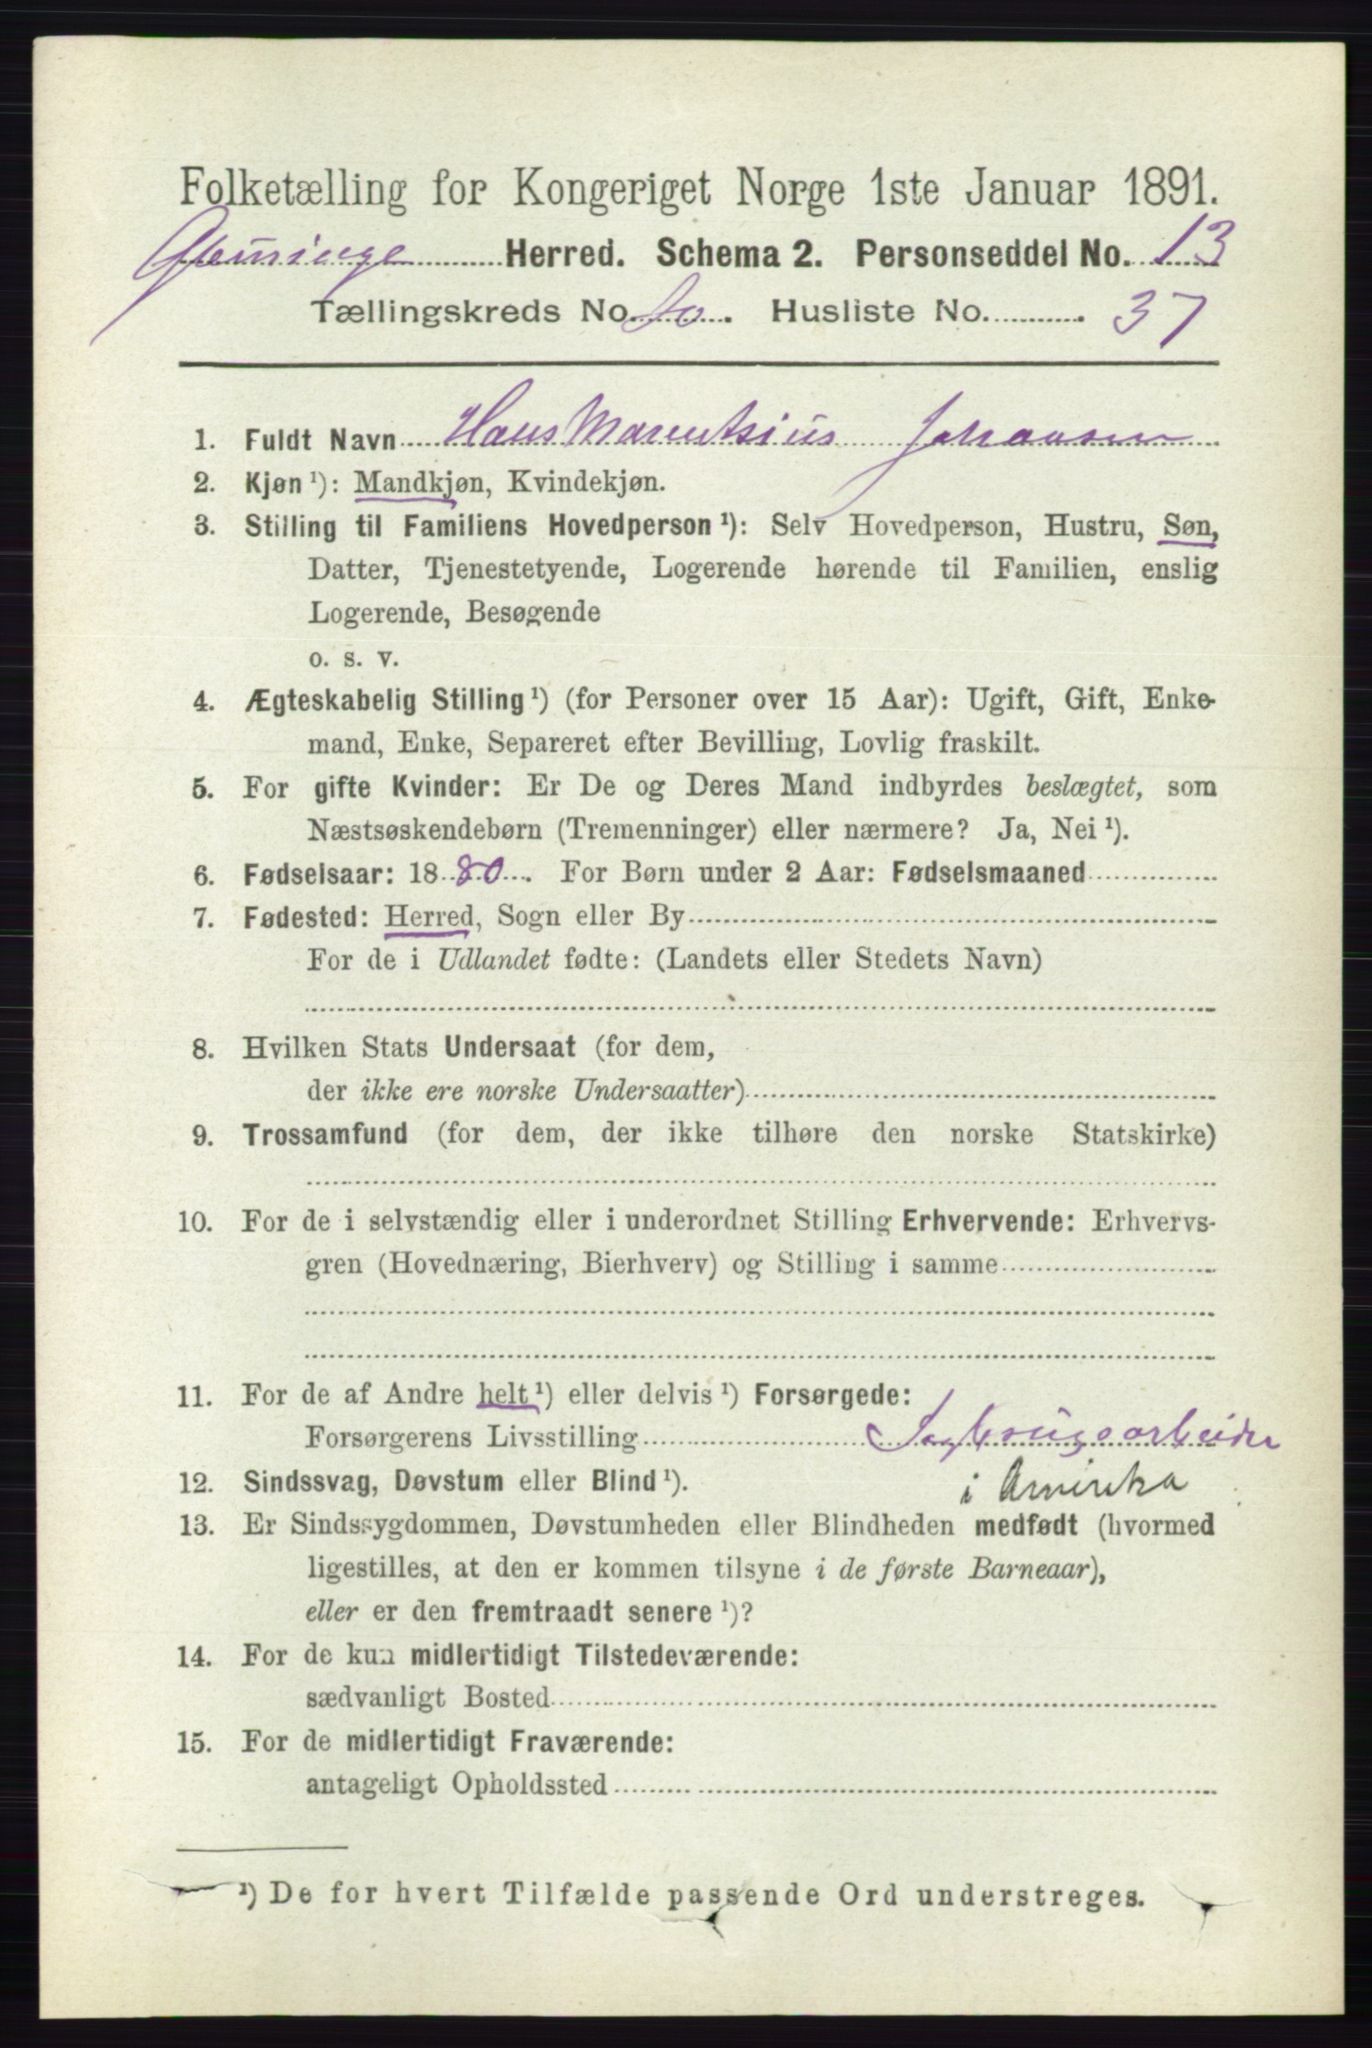 Folketælling for Kongeriget Norge 1ste Januar 1891.
Herred. Schema 2. Personseddel No. 13
Tællingskreds No. . Husliste No. 37
1. Fuldt Navn Hans Johansen
2. Kjøn ¹): Mandkjøn, Kvindekjøn.
3. Stilling til Familiens Hovedperson ¹): Selv Hovedperson, Hustru, Søn,
Datter, Tjenestetyende, Logerende hørende til Familien, enslig
Logerende, Besøgende
o. s. v.
4. Ægteskabelig Stilling ¹) (for Personer over 15 Aar): Ugift, Gift, Enke-
mand, Enke, Separeret efter Bevilling, Lovlig fraskilt.
5. For gifte Kvinder: Er De og Deres Mand indbyrdes beslægtet, som
Næstsøskendebørn (Tremenninger) eller nærmere? Ja, Nei ¹).
6. Fødselsaar: 1880. For Børn under 2 Aar: Fødselsmaaned
7. Fødested: Herred, Sogn eller By
For de i Udlandet fødte: (Landets eller Stedets Navn)
8. Hvilken Stats Undersaat (for dem,
der ikke ere norske Undersaatter)
9. Trossamfund (for dem, der ikke tilhøre den norske Statskirke)
10. For de i selvstændig eller i underordnet Stilling Erhvervende: Erhvervs-
gren (Hovednæring, Bierhverv) og Stilling i samme
11. For de af Andre helt ¹) eller delvis ¹) Forsørgede:
Forsørgerens Livsstilling Sagbrugsarbeider
i Amerika
12. Sindssvag, Døvstum eller Blind ¹).
13. Er Sindssygdommen, Døvstumheden eller Blindheden medfødt (hvormed
ligestilles, at den er kommen tilsyne i de første Barneaar),
eller er den fremtraadt senere ¹)?
14. For de kun midlertidigt Tilstedeværende:
sædvanligt Bosted
15. For de midlertidigt Fraværende:
antageligt Opholdssted
¹) De for hvert Tilfælde passende Ord understreges.